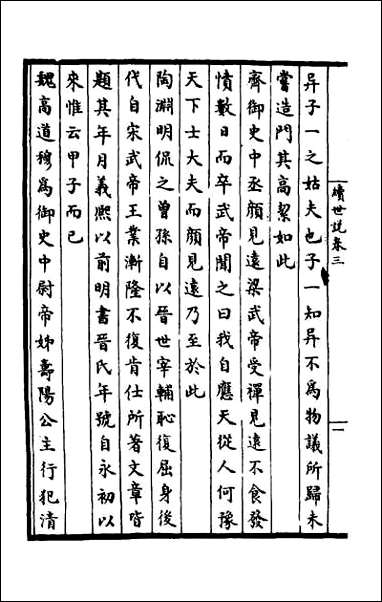 續世說卷三
一
异子一之姑夫也子一知异不為物議所歸未
嘗造門其高絜如此
齊御史中丞顏見遠梁武帝受禪見遠不食發
憤數日而卒武帝聞之曰我自應天從人何豫
天下士大夫而顏見遠乃至於此
陶淵明侃之曾孫自以晉世宰輔恥復屈身後
代自宋武帝王業漸隆不復肯仕所著文章皆
題其年月義熙以前明書晉氏年號自永初以
來惟云甲子而已
魏高道穆為御史中尉帝姊壽陽公主行犯清